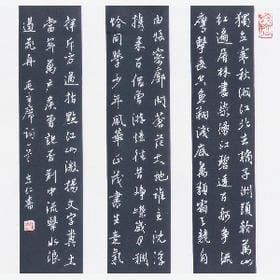 獨立寒秋湘江北去橘子洲頭看萬山
紅遍層林盡染漫江碧透百舸爭流
鷹擊長空魚翔淺底萬類霜天競自
由悵寥廓問蒼茫大地誰主沉浮
攜來百侶曾游憶往昔崢嶸歲月稠
恰同學少年風華正茂書生意氣
揮斥方遒指點江山激揚文字糞土
當年萬戶侯曾記否到中流擊水浪
遏飛舟 毛主席詞一首 書